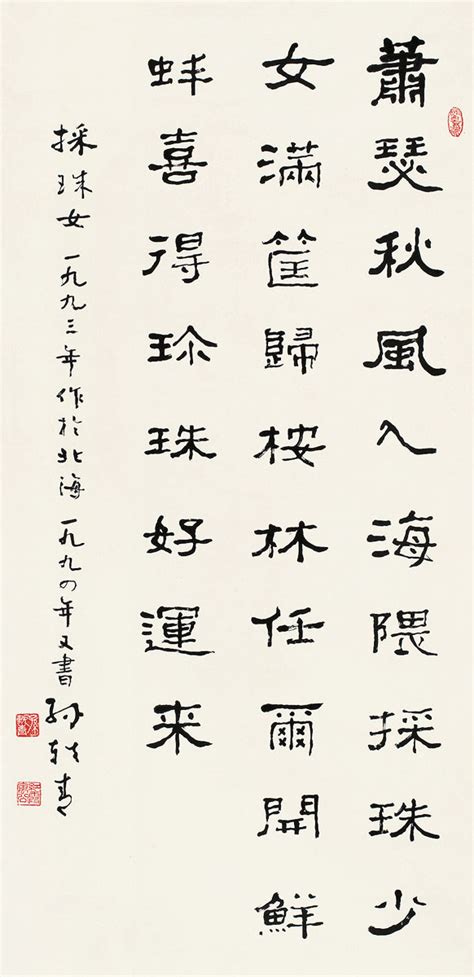 蕭瑟秋風入海隈採珠少
女滿筐歸桉林任爾開鮮
蚌喜得珎珠好運来
採珠女一九九三年作於北海一九九四年又書孫軼青